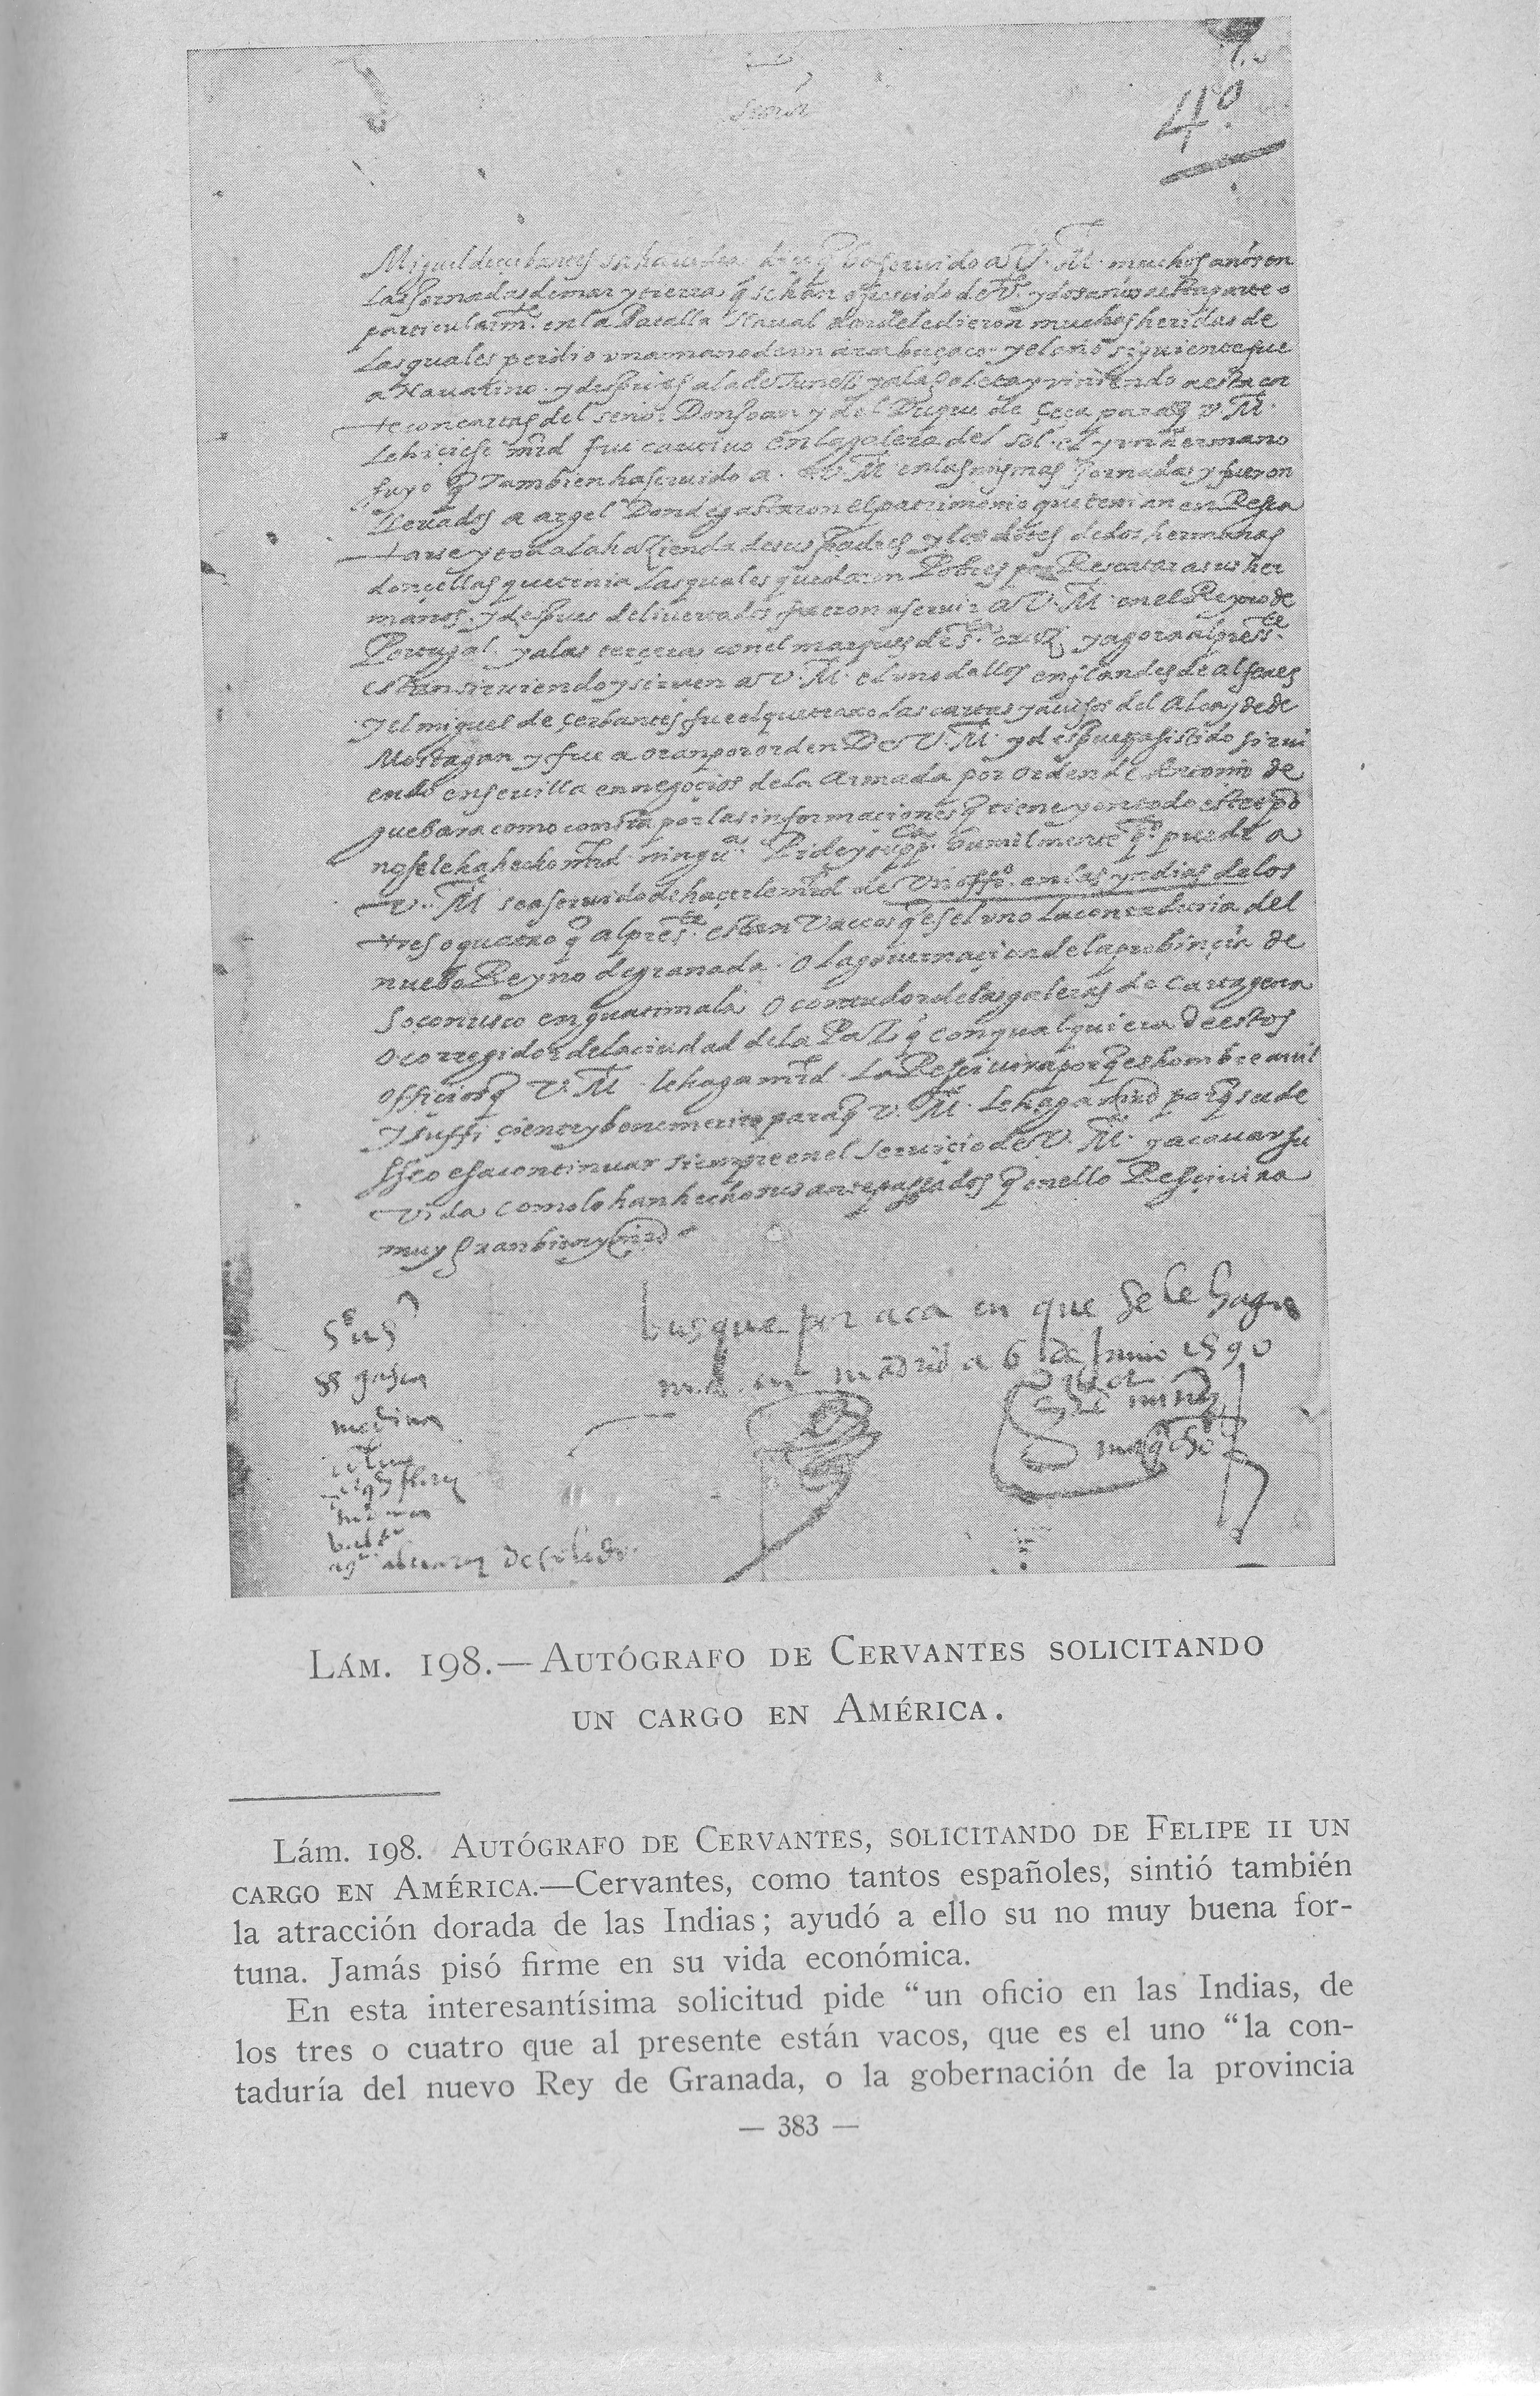 4º
Señor
Miguel de çerbantes sahavedra dize q̃ ha seruido a V. M. muchos años en
las Jornadas de mar y tierra q̃ se han ofrescido de
particularm.te en la Batalla Naual donde le dieron muchas heridas de
las quales perdio vna mano de un arcabuçaço. y el año siguiente fue
a Nauarino. y despues a la de Tunez y a la goleta y viniendo a esta cor
te con cartas del señor Don Joan y del Duque de Çeça para q̃ V. M.
le hiçiese mrd fue cautiuo en la galera del sol. el y vn hermano
suyo q̃ Tambien ha seruido a. V. M. en las mismas Jornadas y fueron
lleuados a argel Donde gastaron el patrimonio que tenian en Resca
tarse y toda la hazienda de sus padres y los dotes de dos hermanas
donçellas que tenia las quales quedaron Pobres por Rescatar a sus her
manos. y despues de liuertados fueron a seruir a V. M. en el Reyno de
Portugal. y a las terçeras con el marques de S.ta cruz y agora al pres.te
estan siruiendo y siruen a V. M. el uno dellos en flandes de alferes
y el miguel de çerbantes fue el que traxo las cartas y auisos del Alcayde de
Mostagan y fue a oran por orden De V. M. y despues ha asistido sirui
endo en seuilla en negoçios de la Armada por orden de Antonio de
guebara como consta por las informaçiones q̃ tiene y en todo este tpo
no se le ha hecho mrd ningu.a Pide y supp.ca humilmente q.to puede a
V. M. sea seruido de haçerle mrd de vn offi.o en las yndias de los
tres o quatro q̃ al pres.te estan Vaccos q̃ es el vno la contaduria del
nuebo Reyno de granada. o la gouernaçion de la probinçia de
Soconusco en guatimala o contador de las galeras de Cartagena
o corregidor de la ciudad de la Paz q̃ con qualquiera de estos
offiçios q̃ V. M. le haga mrd. la Resçiuira porq̃ es hombre auil
y suffiçiente y benemerito para q̃ V. M. le haga mrd porq̃ su de
sseo es a continuar siempre en el seruiçio de V. M. y acauar su
vida como lo han hecho sus antepassados q̃ en ello Resçiuira
muy gran bien y mrd
busque por aca en que se le haga
md. en madrid a 6 de Junio 1590
gasca
medina
aluarez de toledo
LÁM. 198.—AUTÓGRAFO DE CERVANTES SOLICITANDO
UN CARGO EN AMÉRICA.
Lám. 198. AUTÓGRAFO DE CERVANTES, SOLICITANDO DE FELIPE II UN
CARGO EN AMÉRICA.—Cervantes, como tantos españoles, sintió también
la atracción dorada de las Indias; ayudó a ello su no muy buena for-
tuna. Jamás pisó firme en su vida económica.
En esta interesantísima solicitud pide "un oficio en las Indias, de
los tres o cuatro que al presente están vacos, que es el uno "la con-
taduría del nuevo Rey de Granada, o la gobernación de la provincia
— 383 —